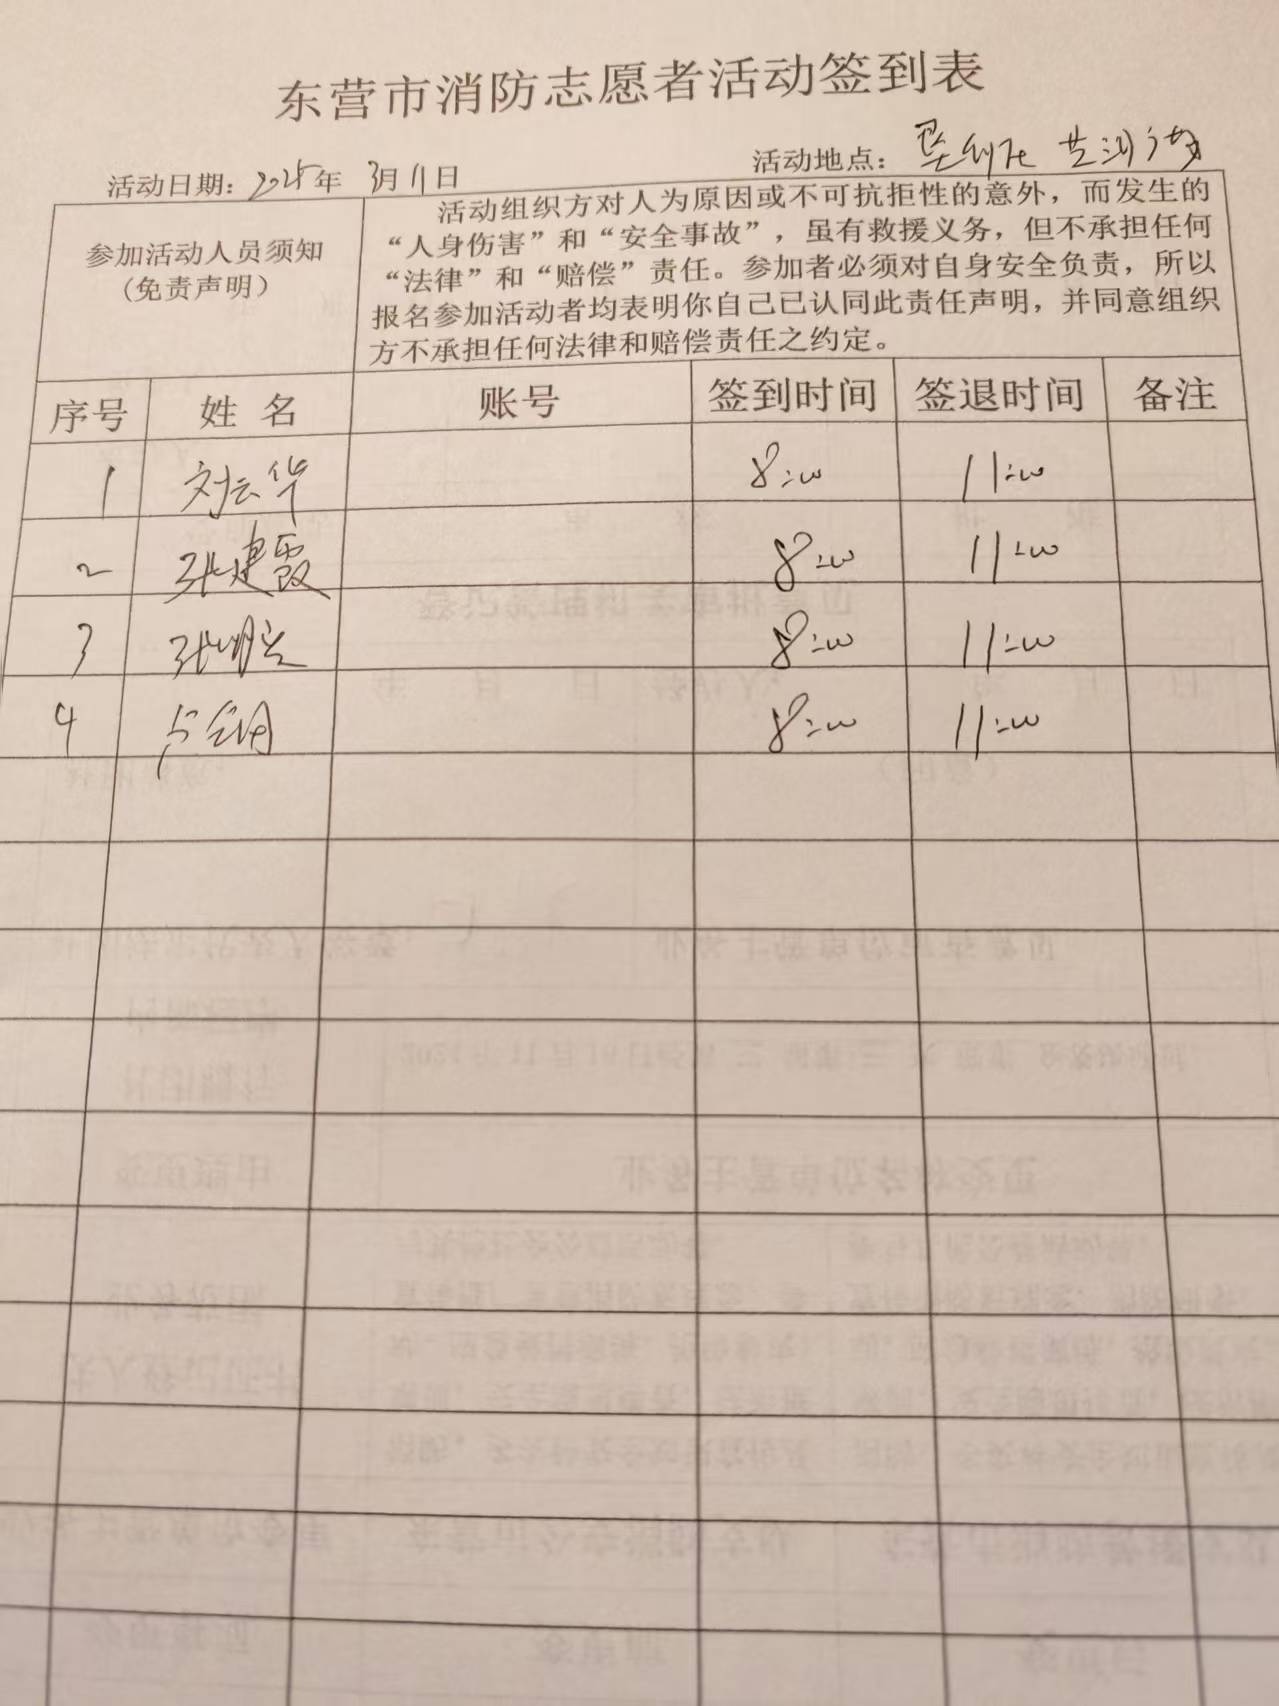 东营市消防志愿者活动签到表
活动日期：2025年 3月11日 活动地点：垦利区
参加活动人员须知
（免责声明）
活动组织方对人为原因或不可抗拒性的意外，而发生的
“人身伤害”和“安全事故”，虽有救援义务，但不承担任何
“法律”和“赔偿”责任。参加者必须对自身安全负责，所以
报名参加活动者均表明你自己已认同此责任声明，并同意组织
方不承担任何法律和赔偿责任之约定。
序号 姓 名 账号 签到时间 签退时间 备注
1 刘云华 8:00 11:00
2 张建霞 8:00 11:00
3 张明 8:00 11:00
4 8:00 11:00